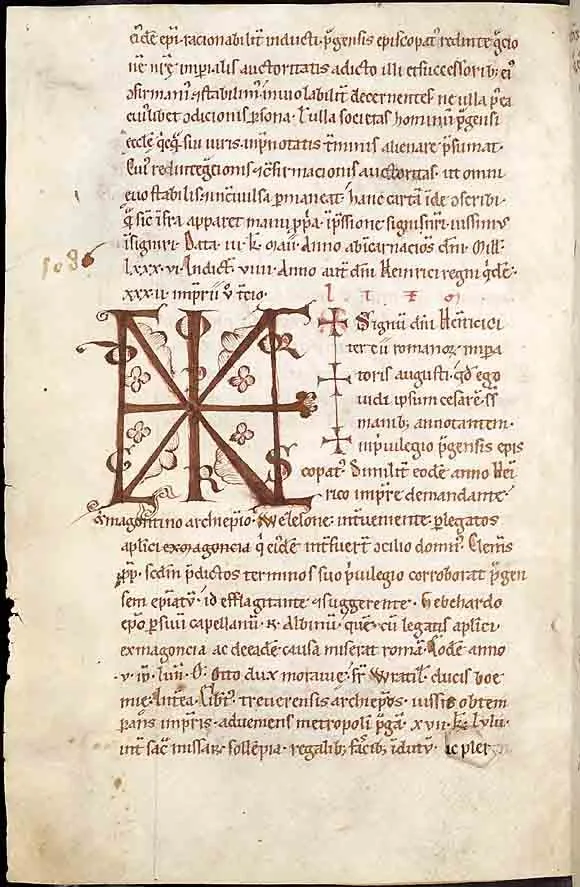 eidē epī. racionabilit̄ inducti. p̄gensis episcopat᷒ redinteg̃cio
nē nrē imp̄ialis auctoritatis edicto illi et successorib; ei᷒
ꝯfirmam᷒ ⁊ stabilim᷒ inuiolabilit̄ decernentes ne ulla p̄ea
cui᷒libet ꝯdicionis ꝑsona. ł ulla societas hominū p̄gensi
eccłe q̄cq̄ sui iuris. inp̄notatis t̄minis alienare p̄sumat.
Cui᷒ redinteg̃cionis ⁊ ꝯfirmacionis auctoritas. ut omni
euo stabilis ⁊ incōuulsa ꝑmaneat. hanc cartā īde ꝯscribi.
q̄ sic īfra apparet manu ꝓpa. ip̄ssione signi n̄ri iussimus
īsigniri. Data iii. k̄. maii. Anno ab īcarnacione dn̄i. Mill.
lxxx. vi. Indict̄. viiii. Anno aut̄ dn̄i Heinrici regni q̄dē.
1086
xxx. ii. imp̄ii ů t̄cio.
Signū dn̄i Heinrici
tercii romanoꝝ imp̄a
toris augusti. qd̄ ego
uidi ipsum cesarē. s̄s
manib; annotantem.
in p̄uilegio p̄gensis epis
copat᷒. Similit̄ eodē anno Hei
rico imp̄re demandante.
& magontino archiep̄io. Wezelone. int̄ueniente. p̱ legatos
aplici ex magoncia q̄ eidē int̄fuerт̄ ꝯcilio domn᷒ Clemīs
pp̄. sc̄dm̄ p̄dictos terminos suo p̄uilegio corroborat p̄gen
sem ep̄iatū. id efflagitante ⁊ suggerente. Gebehardo
epo ꝑ suū capellanū. n̄. Albinū. quē cū legatis aplici
ex magoncia ac de eadē causa miserat romā. Eodē anno
.v. iđ. Iunii. O. Otto dux morauie. fr̄ Wratizl. ducis boe
mie. Intea. Eilb᷒t. treuerensis archiep̄os. iussis obtem
ꝑans imp̄ris. adueniens metropolī p̄gā. xvii. k̄. Iulii.
int̄ sac̄ missaꝝ sollēpnia. regalib; fascib; īdutū.